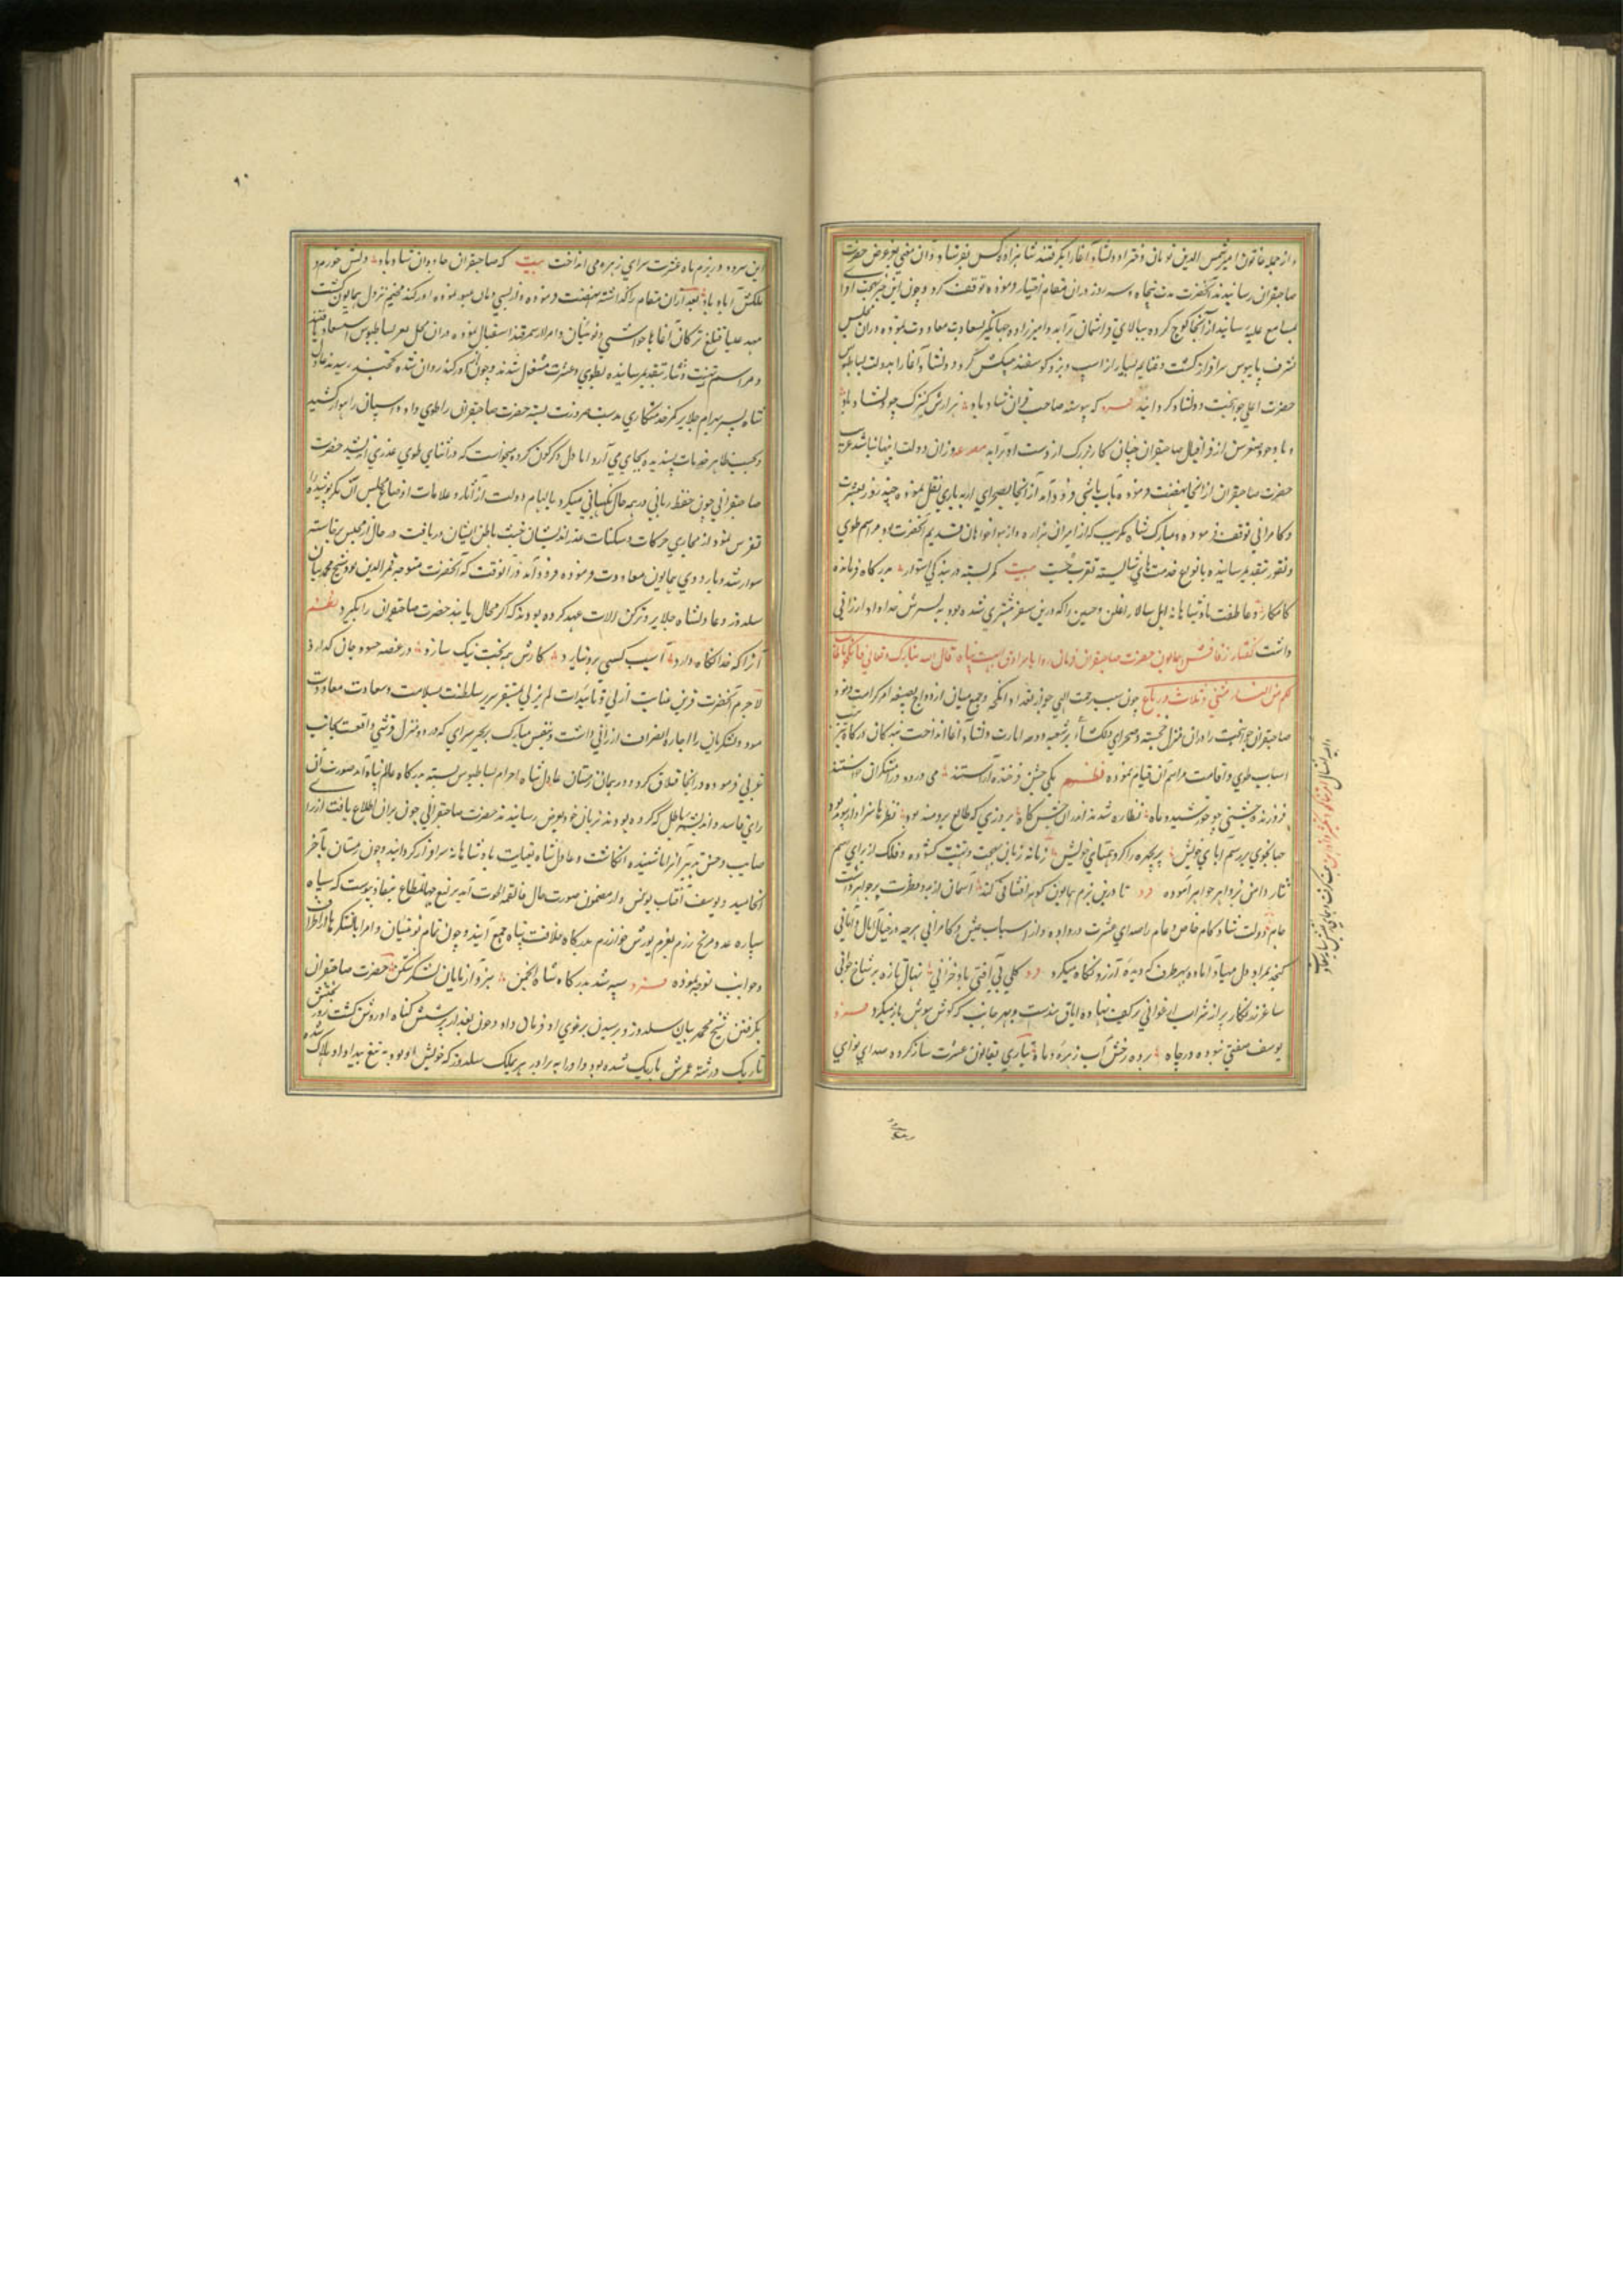 و از جمله خاتون امیر شمس الدین نومان و دختر او دلشاد آغا را بگرفتند شاهزاده کس بفرستاد و آن معنی بعز عرض حضرت
صاحبقران رسانیدند آنحضرت مدت پنجاه و سه روز در آن مقام اختیار فرموده توقف کرد و چون این خبر بهجت
بمسامع علیه رسانیدند از آنجا کوچ کرده ببالای برآمد و امیرزاده جهانگیر بسعادت معاودت نموده در آن مجلس
شرف پایبوس سرافراز گشت و غنایم بسیار از اسب و بز و گوسفند پیشکش کرد و دلشاد آغا را بدولت بساطبوس
حضرت اعلی جوانبخت و دلشاد گردانید که پیوسته صاحب قران شاد باد هزارش کنیزک چو دلشاد باد
و با وجود صغر سن از فر اقبال صاحبقران چنان کار بزرگ از دست او برآمد مصرعه وز آن دولت اینها نباشد غریب
حضرت صاحبقران از آنجا نهضت فرموده بآب باشی فرود آمد از آنجا بصحرای ارپه یازی نقل نموده چند روز بعشرت
و کامرانی توقف فرموده و مبارک شاه مکریت که از امرای هزاره و از هواخواهان قدیم آنحضرت بود مراسم طوی
و تقوز بتقدیم رسانیده بانواع خدمتهای شایسته تقرب جست بیت کمر بسته در بندگی استوار بدرگاه فرمانده
کامکار و عاطفت پادشاهانه ایل سالار اغلن و حسین را که درین سفر شده بود به پسرش خداداد ارزانی
داشت گفتار زفاف همایون حضرت صاحبقران قال الله تبارک و تعالی فانکحوا ما طاب
لکم من النساء مثنی و ثلاث و رباع چون سبب رحمت الهی جواز تعدد انکحه و جمع میان ازدواج بصیغه امر کرامت فرمود
صاحبقران جوانبخت را در آن منزل خجسته و صحرای دلگشا دلشاد آغا انداخت بندگان درگاه بترتیب
اسباب طوی و اقامت مراسم آن قیام نموده نظم یکی جشن فرخنده آراستند می و رود و رامشگران خواستند
فروزنده جشنی چو خورشید و ماه نظاره شده اندر آن جشن گاه بروزی که طالع برومند بود نظرها سزاوار پیوند بود
جهانجوی بر رسم آبای خویش پریچهره را کرد همتای خویش زمانه زبان بهجت و تهنیت گشوده و فلک از برای رسم
نثار دامن پر در و جواهر آموده تا درین بزم همایون گوهر افشانی کند آسمان پر جواهر داشت
جام دولت شادکام خاص و عام را صدای عشرت در داده و از اسباب عیش و کامرانی هرچه در خیال آمال و امانی
گنجد بمراد دل مهیا و آماده بهر طرف که دیده آرزو نگاه میکرد گلی بی آفت باد خزانی نهال تازه بر شاخ جوانی
ساغر زرنگار پر از شراب ارغوانی بر کف نهاده و بهر جانب که گوش هوش باز میکرد
یوسف مغنی نبوده در چاه برده رخش آب زهره و ماه بقانون عشرت ساز کرده صدای نوای
۹۰
این سرود در بزم ماه عشرت سرای زهره می انداخت بیت که صاحبقران جاودان شاد باد دلش خرم و
ملکش آباد باد بعد از آن مقام را گذاشته نهضت فرموده و از یسی دبان عبور نموده اورکند مخیم نزول همایون گشت
مهد علیا قتلغ ترکان آغا با حواشی و نوینان و امرا از سمرقند استقبال نموده در آن محل بعز بساطبوس استسعاد یافتند
و مراسم تهنیت و نثار بتقدیم رسانیده بطوی و عشرت مشغول شدند و چون از اورکند روان شده بخجند رسیدند عادل
شاه پسر بهرام جلایر کمر خدمتکاری بسته حضرت صاحبقران را طوی داد و اسپان راهوار کشید
و بحسب ظاهر خدمات پسندیده بجای می آورد اما دل دگرگون کرده میخواست که در اثنای طوی غدری اندیشد حضرت
صاحبقرانی چون حفظ ربانی در همه حال نگهبانی میکرد بالهام دولت از آثار و علامات اوضاع مجلس آن مکر پوشیده را
تفرس نمود از مجاری حرکات و سکنات غدراندیشان خبث باطن ایشان دریافت در حال از مجلس برخاسته
سوار شد و باردوی همایون معاودت فرموده فرود آمد در آن وقت که آنحضرت متوجه قمر الدین بود شیخ محمد بیان
سلدوز و عادلشاه جلایر و ترکن ارلات عهد کرده بودند که اگر مجال یابند حضرت صاحبقران را بگیرد نظم
آنرا که خدا نگاه دارد آسیب کسی برو نیارد کارش همه بخت نیک سازد در غصه حسود جان گدازد
لاجرم آنحضرت قرین عنایت ازلی و تأییدات لم یزلی بمستقر سریر سلطنت بسلامت و سعادت معاودت
نمود و لشکریان را اجازه انصراف ارزانی داشت و بنفس مبارک بزنجیر سرای که در دو منزل قرشی واقعست بجانب
غربی فرموده در آنجا قشلاق کرده و در همان زمستان عادل شاه احرام بساطبوس بسته بدرگاه عالم پناه آمد صورت آن
رای فاسد و اندیشه باطل که کرده بودند بزبان خود بعرض رسانیدند حضرت صاحبقرانی چون بر آن اطلاع یافت از رای
صایب و حسن تدبیر آنرا ناشنیده انگاشت و عادل شاه بعنایت پادشاهانه سرافراز گردانید و چون زمستان بآخر
انجامید و یوسف آفتاب یونس وار مضمون صورت حال فالتقمه الحوت آمد یرلیغ جهانمطاع بنفاذ پیوست که سپاه
سپاره عدد مریخ رزم بعزم یورش خوارزم بدرگاه خلافت پناه جمع آیند و چون تمام نوینان و امرا با لشکرها از اطراف
و جوانب توجه نموده سپه شد بدرگاه شاه انجمن حضرت صاحبقران
بگرفتن شیخ محمد بیان سلدوز و پرسیدن یرغوی او فرمان داد و چون بعد از پرسش گناه او روشن گشت روز بختش
تاریک و رشته عمرش باریک شده بود او را به برادر هری ملک سلدوز که خویش او بود به تیغ بیداد او هلاک شده